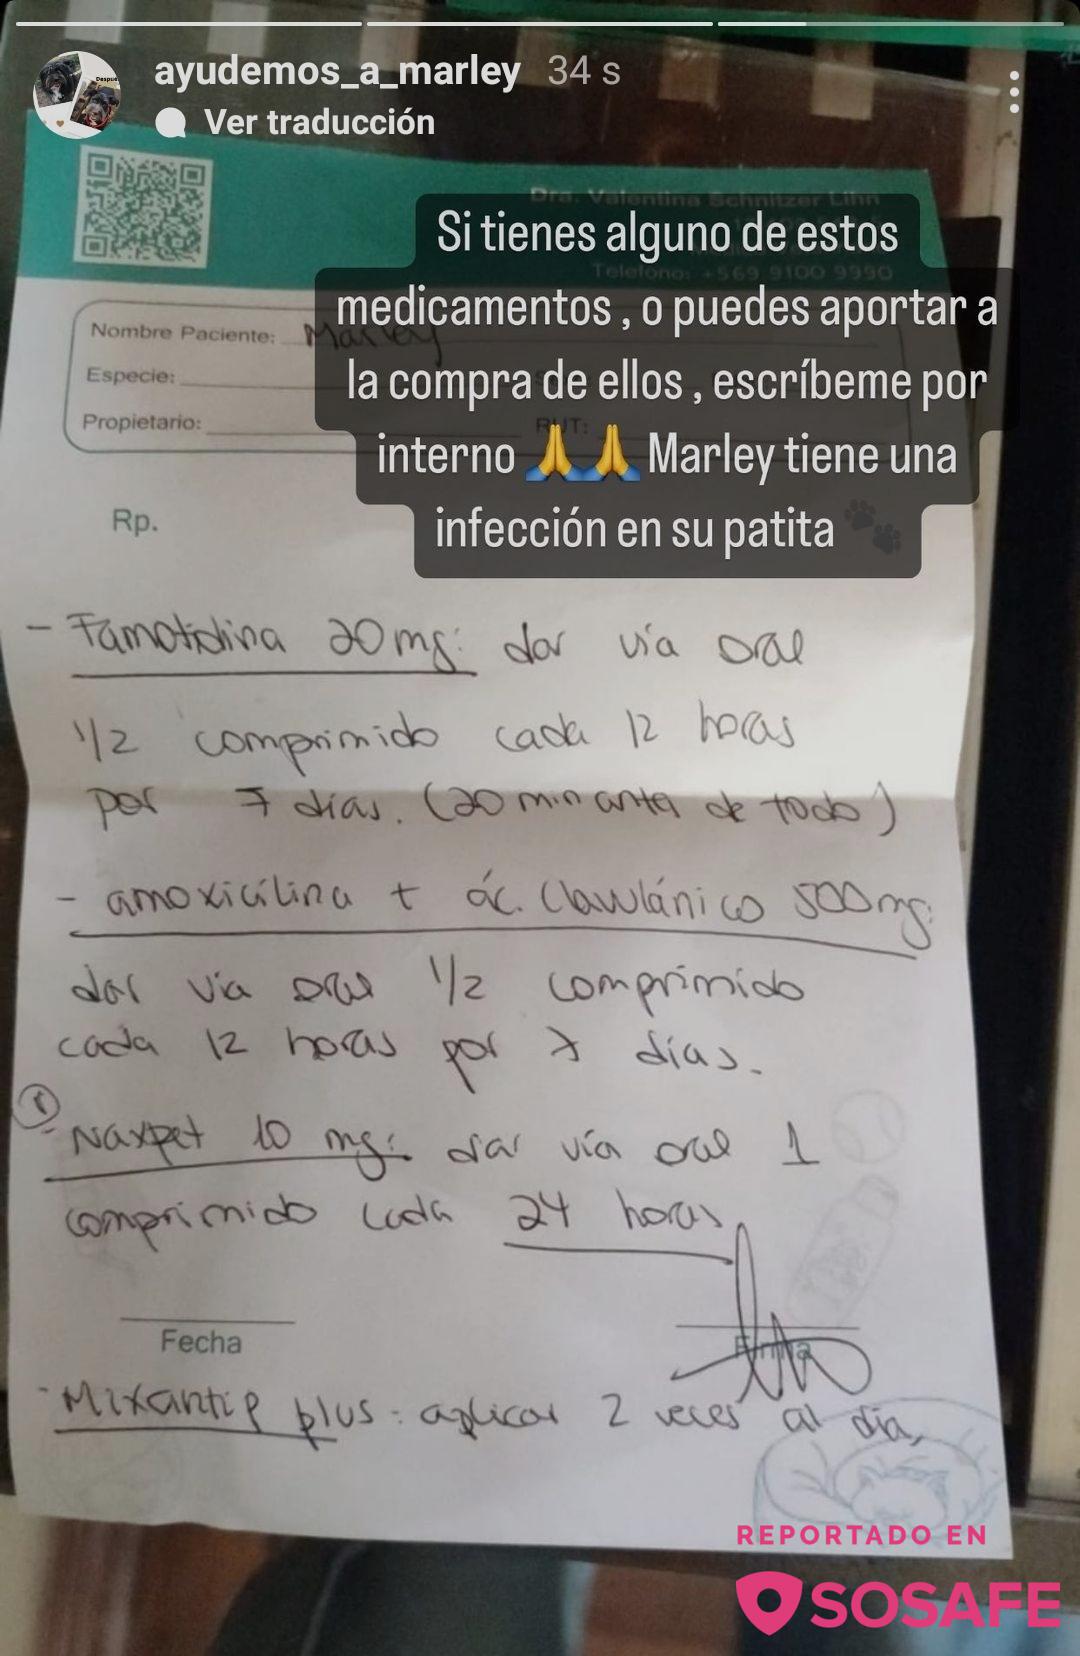 ayudemos_a_marley 34 s
Ver traducción
Despué
Dra. Valentina Schnitzer Lihn
Telefono: +569 9100 9990
Si tienes alguno de estos
medicamentos , o puedes aportar a
la compra de ellos , escríbeme por
interno 🙏🙏 Marley tiene una
infección en su patita 🐾
Nombre Paciente: Marley
Especie:
Propietario:
RUT:
Rp.
- Famotidina 20mg: dar vía oral
1/2 comprimido cada 12 horas
por 7 días. (20 min antes de todo)
- amoxicilina + ác. Clavulánico 500mg:
dar vía oral 1/2 comprimido
cada 12 horas por 7 días.
- Naxpet 10 mg: dar vía oral 1
comprimido cada 24 horas
Fecha
Firma
- Mixantip plus: aplicar 2 veces al día,
REPORTADO EN
SOSAFE